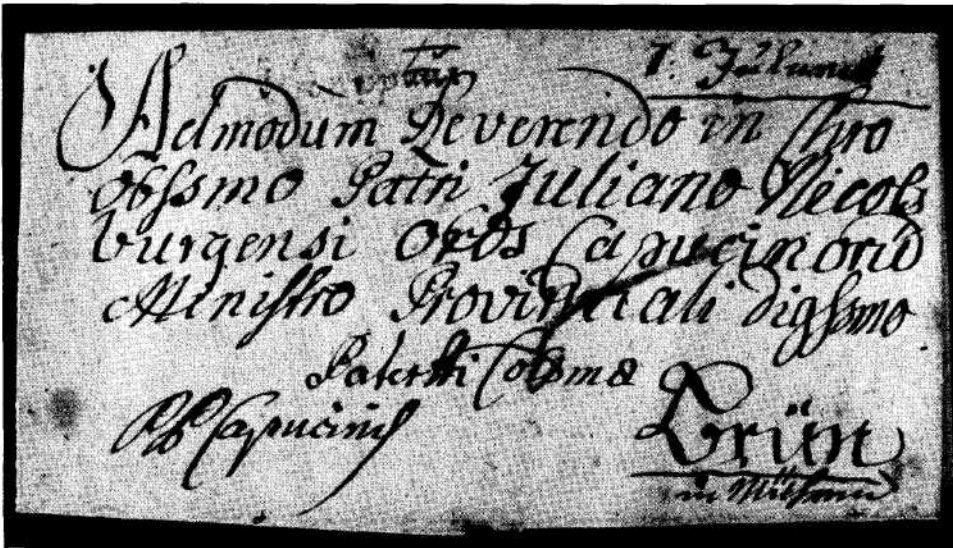 Admodum Reverendo in Chro
obssmo Patri Juliano Nicols
burgensi Ords Capucinorū
Ministro Provinciali digssmo
Colssmo
PP Capucinis
Brün
in